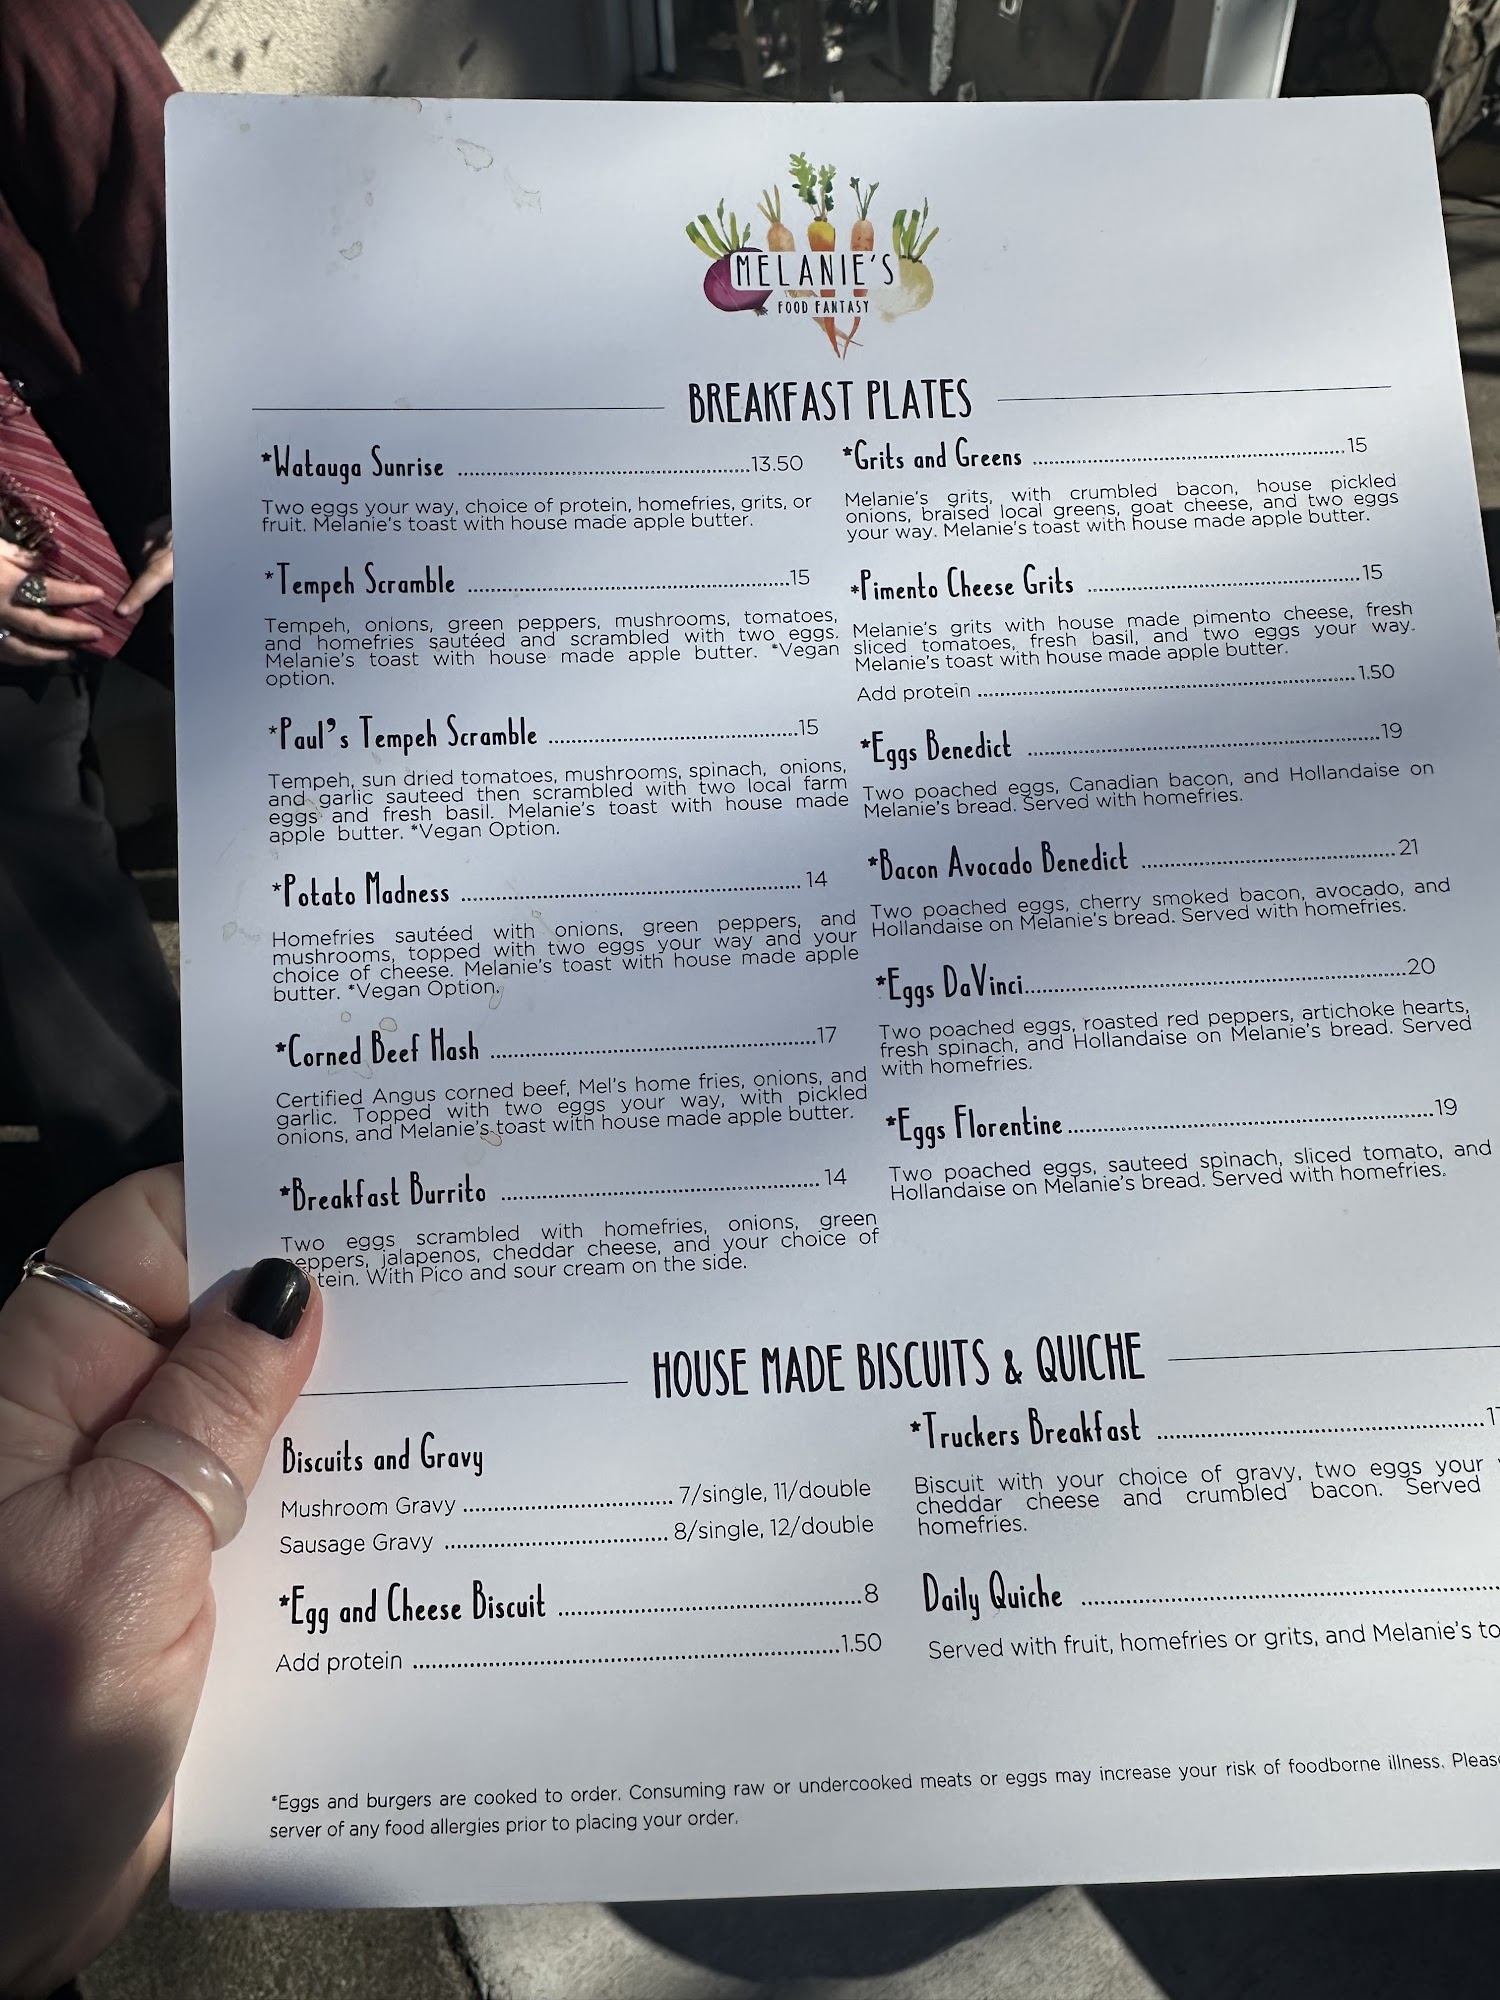 MELANIE'S
FOOD FANTASY
BREAKFAST PLATES
*Watauga Sunrise ........ 13.50
Two eggs your way, choice of protein, homefries, grits, or
fruit. Melanie's toast with house made apple butter.
*Tempeh Scramble ........ 15
Tempeh, onions, green peppers, mushrooms, tomatoes,
and homefries sautéed and scrambled with two eggs.
Melanie's toast with house made apple butter. *Vegan
option.
*Paul's Tempeh Scramble ........ 15
Tempeh, sun dried tomatoes, mushrooms, spinach, onions,
and garlic sauteed then scrambled with two local farm
eggs and fresh basil. Melanie's toast with house made
apple butter. *Vegan Option.
*Potato Madness ........ 14
Homefries sautéed with onions, green peppers, and
mushrooms, topped with two eggs your way and your
choice of cheese. Melanie's toast with house made apple
butter. *Vegan Option.
*Corned Beef Hash ........ 17
Certified Angus corned beef, Mel's home fries, onions, and
garlic. Topped with two eggs your way, with pickled
onions, and Melanie's toast with house made apple butter.
*Breakfast Burrito ........ 14
Two eggs scrambled with homefries, onions, green
eppers, jalapenos, cheddar cheese, and your choice of
tein. With Pico and sour cream on the side.
*Grits and Greens ........ 15
Melanie's grits, with crumbled bacon, house pickled
onions, braised local greens, goat cheese, and two eggs
your way. Melanie's toast with house made apple butter.
*Pimento Cheese Grits ........ 15
Melanie's grits with house made pimento cheese, fresh
sliced tomatoes, fresh basil, and two eggs your way.
Melanie's toast with house made apple butter.
Add protein ........ 1.50
*Eggs Benedict ........ 19
Two poached eggs, Canadian bacon, and Hollandaise on
Melanie's bread. Served with homefries.
*Bacon Avocado Benedict ........ 21
Two poached eggs, cherry smoked bacon, avocado, and
Hollandaise on Melanie's bread. Served with homefries.
*Eggs DaVinci ........ 20
Two poached eggs, roasted red peppers, artichoke hearts,
fresh spinach, and Hollandaise on Melanie's bread. Served
with homefries.
*Eggs Florentine ........ 19
Two poached eggs, sauteed spinach, sliced tomato, and
Hollandaise on Melanie's bread. Served with homefries.
HOUSE MADE BISCUITS & QUICHE
Biscuits and Gravy
Mushroom Gravy ........ 7/single, 11/double
Sausage Gravy ........ 8/single, 12/double
*Egg and Cheese Biscuit ........ 8
Add protein ........ 1.50
*Truckers Breakfast ........
Biscuit with your choice of gravy, two eggs your
cheddar cheese and crumbled bacon. Served
homefries.
Daily Quiche ........
Served with fruit, homefries or grits, and Melanie's to
*Eggs and burgers are cooked to order. Consuming raw or undercooked meats or eggs may increase your risk of foodborne illness. Please
server of any food allergies prior to placing your order.